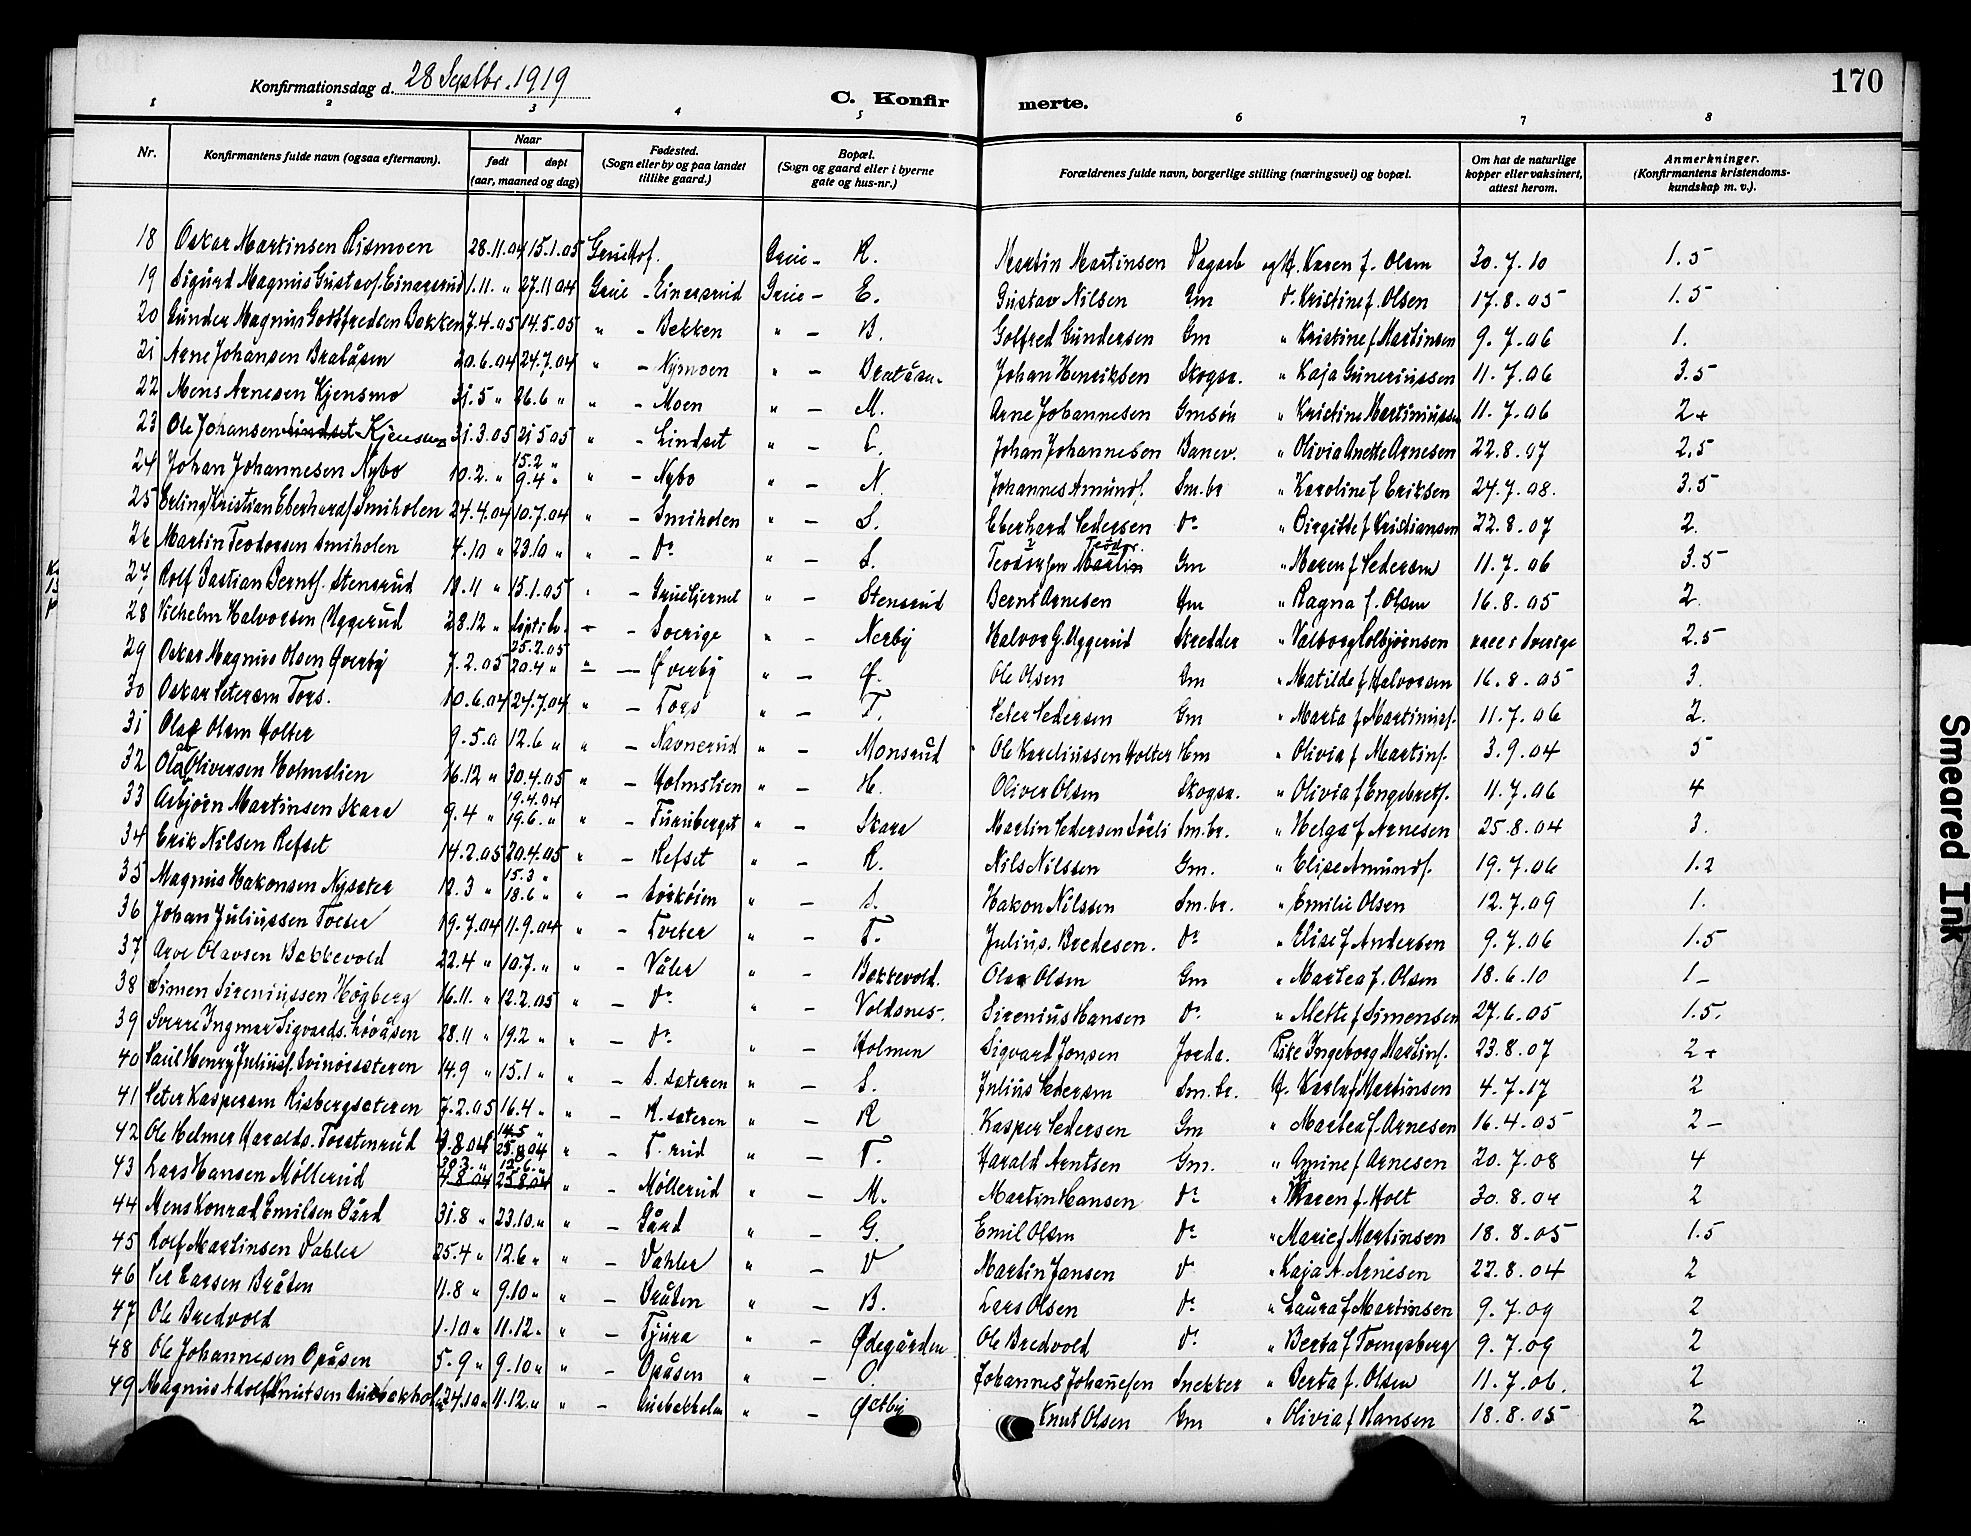 170
Konfirmationsdag d. 28 Septbr. 1919
C. Konfir merte.
1 2 3 4 5 6 7 8
Nr. Konfirmantens fulde navn (ogsaa efternavn). Naar født døpt (aar, maaned og dag) Fødested. (Sogn eller by og paa landet tillike gaard.) Bopæl. (Sogn og gaard eller i byerne gate og hus-nr.) Forældrenes fulde navn, borgerlige stilling (næringsvei) og bopæl. Om hat de naturlige kopper eller vaksinert, attest herom. Anmerkninger. (Konfirmantens kristendoms-kundskap m. v.).
18 Oskar Martinsen Rismoen 28.11.04 15.1.05 Grue Hof. Grue - R. Martin Martinsen Dagarb og H. Karen f. Olsen 30.7.10 1.5
19 Sigurd Magnus Gustavs. Einarsrud 1.11. " 27.11.04 Grue - Einarsrud Grue - E. Gustav Nilsen Gm Kristine f. Olsen 17.8.05 1.5
20 Gunder Magnus Gottfredsen Bekken 7.4.05 14.5.05 " - Bekken " - B. Gotfred Gundersen Gm " Kristine f Martinsen 9.7.06 1.
21 Arne Johansen Bratåsen 20.6.04 24.7.04 " - Nymoen " - Bratåsen. Johan Henriksen Skogsr. " Kaja Guneriussen 11.7.06 3.5
22 Mens Arnesen Kjensmo 31.5 " 26.6 " " - Moen " - M. Arne Johannesen Gmsøn " Kristine Martiniussen 11.7.06 2+
23 Ole Johansen Lindset Kjensmo 31.3.05 21.5.05 " - Lindset " - L. Johan Johannesen Banev. " Olivia Anette Arnesen 22.8.07 2.5
24 Johan Johannesen Nybo 10.2. " 15.2 " 9.4 " " - Nybo " - N. Johannes Amunds. Sm.br " Karoline f Eriksen 24.7.08. 3.5
25 Erling Kristian Eberhards. Smiholen 24.4.04 10.7.04 " - Smiholen " - S. Eberhard Pedersen do " Birgitte f Kristiansen 22.8.07 2.
26 Martin Teodorsen Smiholen 4.10 " 23.10 " " - do " - S. Teodor Martin Gm " Maren f Pedersen 11.7.06 3.5
27 Rolf Bastian Bernts. Stensrud 18.11 " 15.1.05 " - Gruetjernet " - Stensrud Bernt Arnesen Hm " Ragna f. Olsen 16.8.05 2.
28 Vilhelm Halvorsen Uggerud 28.12 " - Sverige " - Nerby Halvor G. Uggerud Skredder " Valborg Tolbjørnsen vacc i Sverige 2.5
29 Oskar Magnus Olsen Øverby 7.2.05 25.2.05 20.4 " - Øverby " - Ø. Ole Olsen Gm " Matilde f Halvorsen 16.8.05 3.
30 Oskar Petersen Tors. 10.6.04 24.7.04 " - Tors " - T. Peter Pedersen Gm " Marta f Martinius. 11.7.06 2.
31 Olaf Olsen Holter 9.5.0 12.6 " " - Navnerud " - Monsrud Ole Kareliussen Holter Hm " Olivia f Martins. 3.9.04 5
32 Olav Oliversen Holmslien 16.12 " 30.4.05 " - Holmslien " - H. Oliver Olsen Skogsr. " Olivia f Engebrets. 11.7.06 4
33 Asbjørn Martinsen Skara 9.4 " 19.4.04 19.6. " " - Furuberget " - Skara Martin Pedersen Sörli Sm.br. " Helga f Arnesen 25.8.04 3.
34 Erik Nilsen Refset 14.2.05 20.4.05 " - Refset " - R. Nils Nilssen Gm. " Elise Amunds. 19.7.06 1.2
35 Magnus Hakonsen Nysæter 12.3 " 15.3 " 18.6 " " " - S. Hakon Nilssen Sm.br. " Emilie Olsen 12.7.09 1.
36 Johan Juliussen Tveter 19.7.04 11.9.04 " - Tveter " - T. Julius. Bredesen. do " Elise f Andersen 9.7.06 1.5
37 Arve Olavsen Bekkevold 22.4 " 10.7. " " - Våler " - Bekkevold. Olav Olsen Gm " Martea f. Olsen 18.6.10 1-
38 Simen Sireniussen Högberg 16.11. " 12.2.05 " - do " - Voldsnes. Sirenius Hansen do " Mette f Simensen 27.6.05 1.5.
39 Sverre Ingmar Sigvards. Lövåsen 28.11 " 19.2 " " - do " - Holmen Sigvard Jonsen Jordr. Pike Ingeborg Martins. 23.8.07 2+
40 Paul Henry Julius. Svinoisæteren 14.9 " 15.1 " " - S. sæteren " - S. Julius Pedersen Sm.br. H. Karla f Martinsen 4.7.17 2
41 Peter Kaspersen Risbergsæteren 7.2.05 16.4 " " - R. sæteren " - R Kasper Pedersen Gm " Martea f. Arnesen 16.4.05 2-
42 Ole Helmer Haralds. Torstenrud 9.8.04 14.5 " 25.8.04 " - T. rud " - T. Harald Arntsen Gm. " Amine f Arnesen 20.7.08 4
43 Lars Hansen Möllerud 30.3. " 12.6. " 4.8.04 25.8.04 " - Möllerud " - M. Martin Hansen do " Karen f. Holt 30.8.04 2
44 Mens Konrad Emilsen Gård 31.8 " 23.10. " " - Gård " - G. Emil Olsen do " Marie f Martinsen 18.8.05 1.5
45 Rolf Martinsen Vahler 25.4 " 12.6 " " - Vahler " - V Martin Jansen do " Kaja A. Arnesen 22.8.04 2
46 Per Larsen Bråten 11.8 " 9.10 " " - Bråten " - B. Lars Olsen do " Laura f Martinsen 9.7.09 2
47 Ole Bredvold 1.10 " 11.12. " " - Tjura " - Ødegården Ole Bredvold do " Berta f Tvengsberg 9.7.09 2
48 Ole Johannesen Opåsen 5.9 " 9.10 " " - Opåsen " - O. Johannes Johannesen Snekker " Berta f. Olsen 11.7.06. 2
49 Magnus Adolf Knutsen 24.10 " 11.12. " " - " - Østby Knut Olsen Gm " Olivia f Hansen 18.8.05 2
Smeared Ink